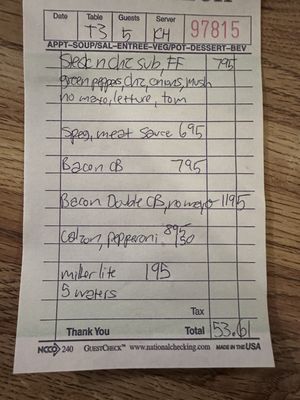 Date Table Guests Server
T3 5 KH 97815
APPT-SOUP/SAL-ENTREE-VEG/POT-DESSERT-BEV
Steak n chz sub, FF 795
green peppers, chz, onions, mush
no mayo, lettuce, tom
Spag, meat sauce 695
Bacon CB 795
Bacon Double CB, no mayo 1195
Calzon, pepperoni 895
50
miller lite 195
5 waters
Tax
Thank You Total 53.61
NCCO 240 GUESTCHECK™ www.nationalchecking.com MADE IN THE USA